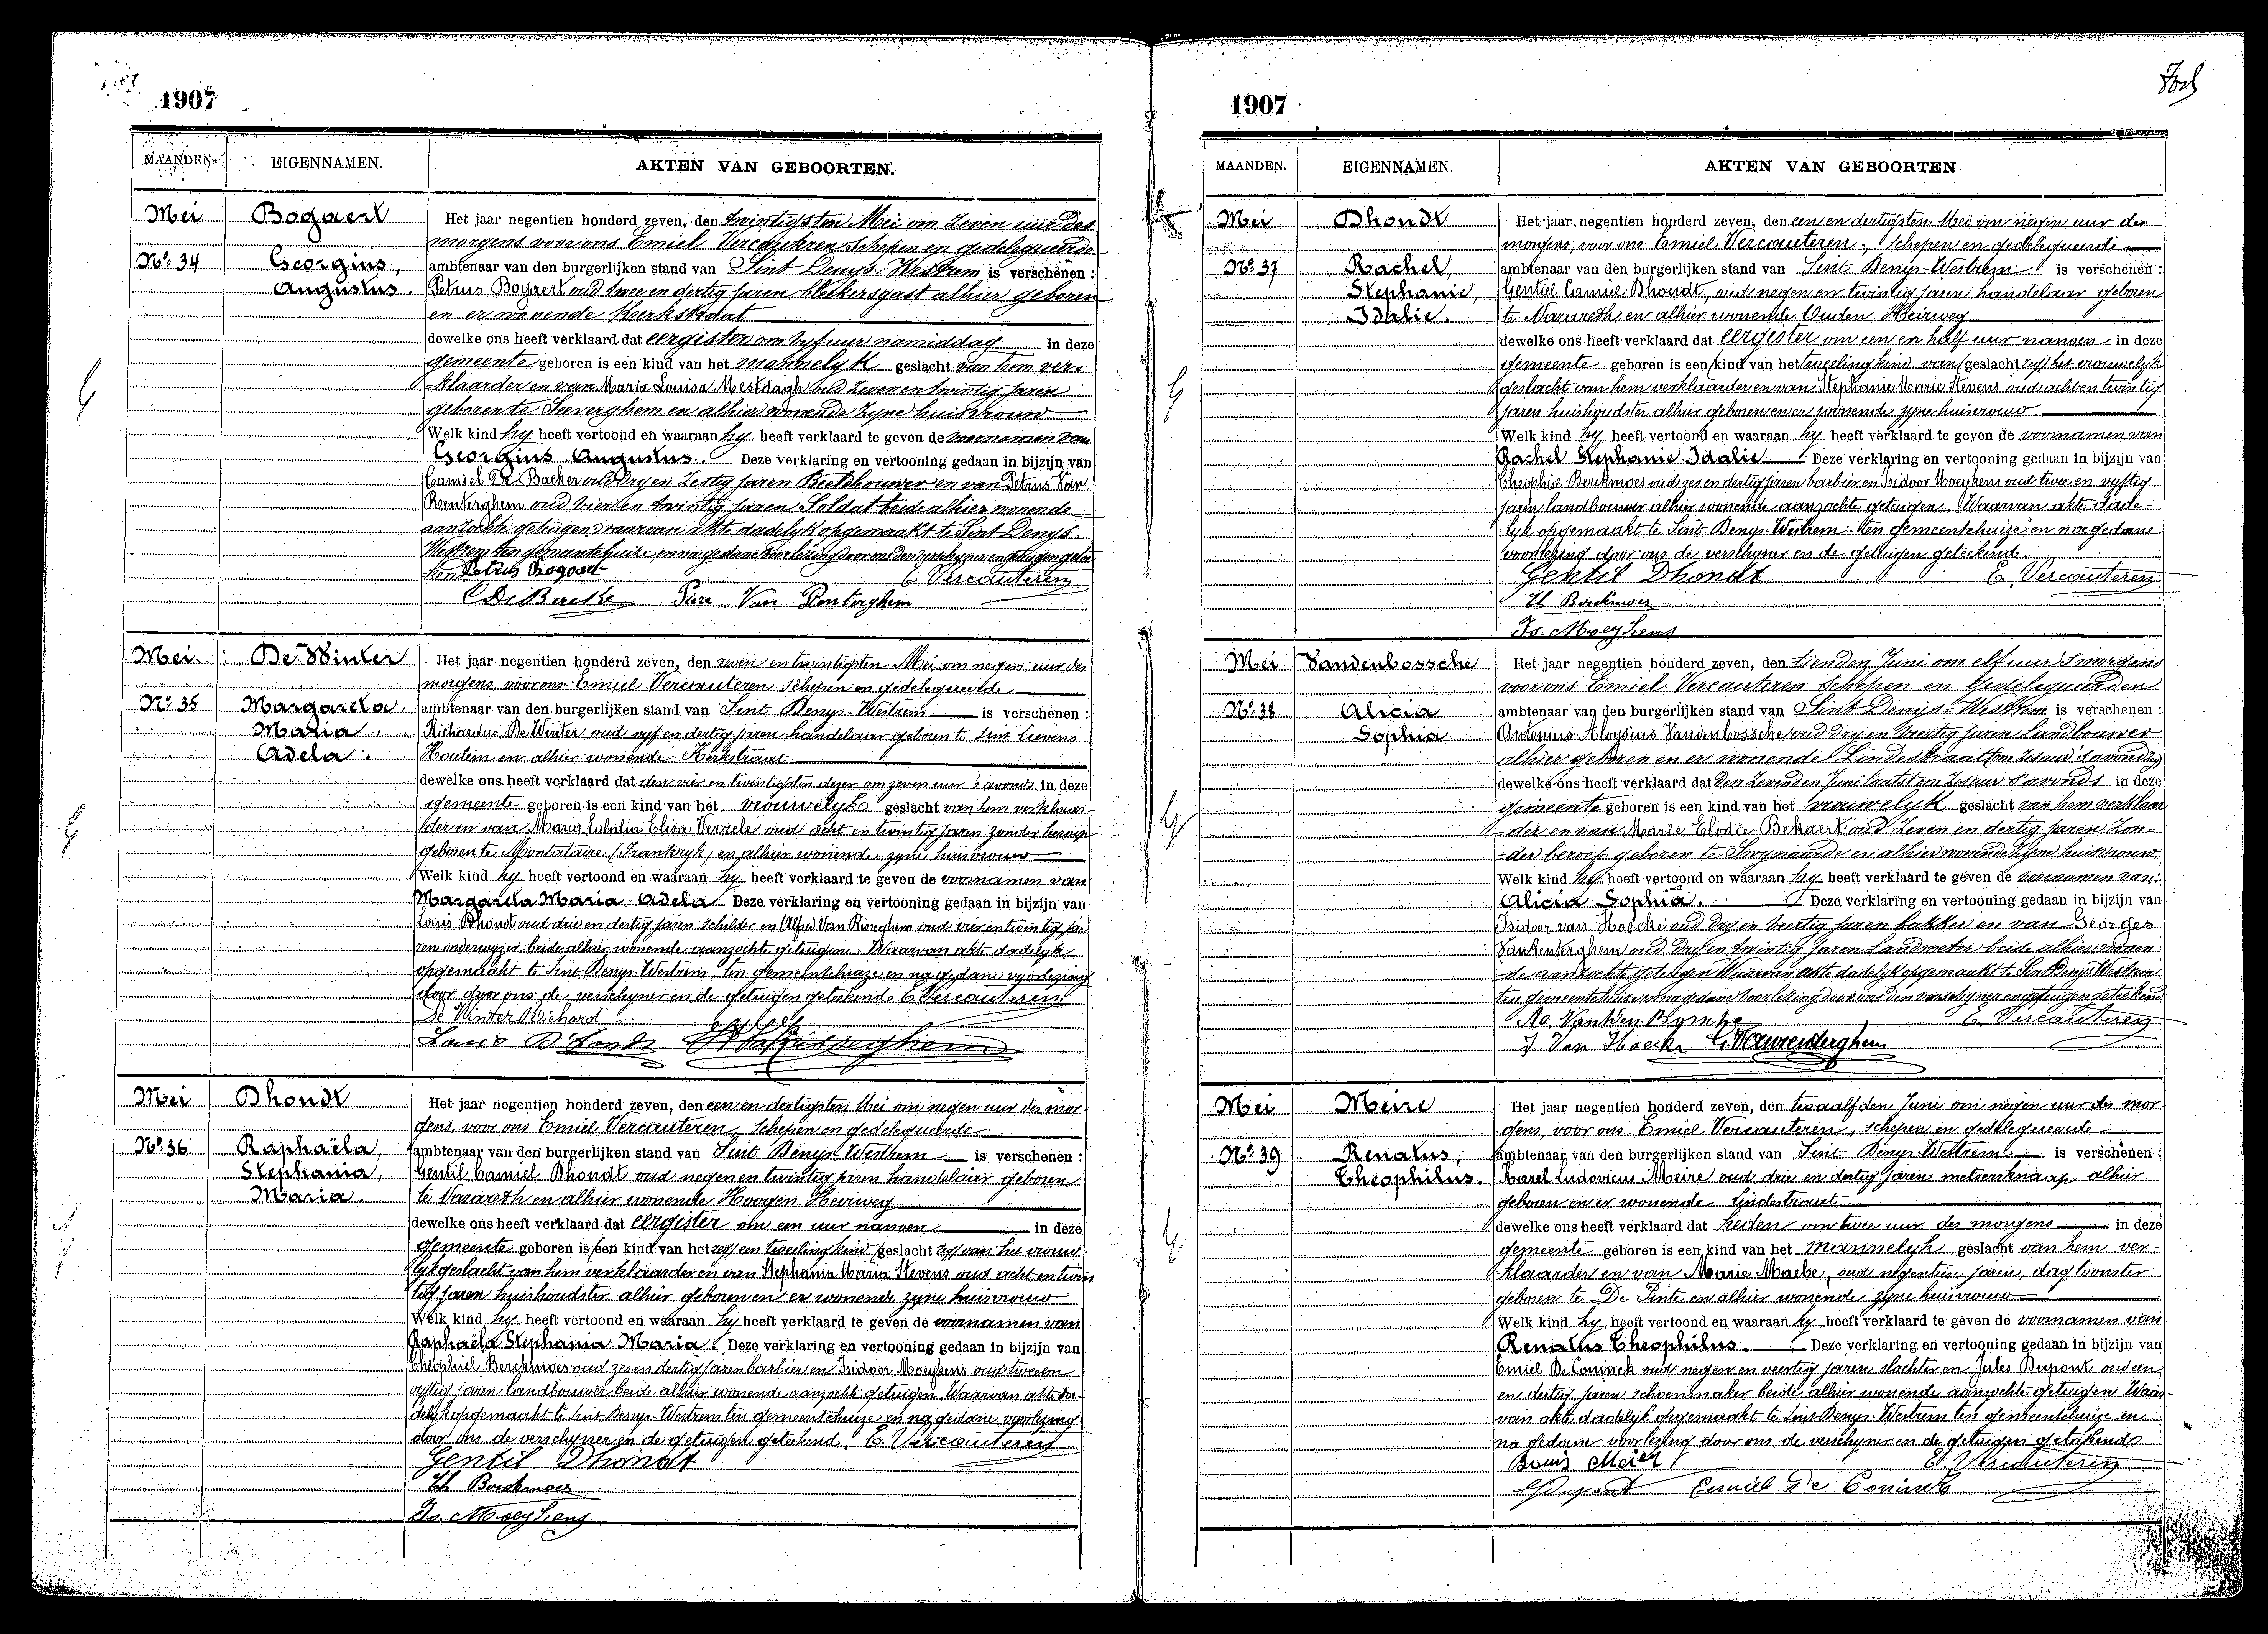 1907
MAANDEN. EIGENNAMEN. AKTEN VAN GEBOORTEN.
Mei Bogaert Het jaar negentien honderd zeven, den twintigsten Mei om zeven uur des
morgens voor ons Emiel Vercauteren schepen en gedelegueerde
No. 34 Georgius, ambtenaar van den burgerlijken stand van Sint Denys-Westrem is verschenen :
Augustus. Petrus Bogaert oud twee en dertig jaren bleekersgast alhier geboren
en er wonende Kerkstraat
dewelke ons heeft verklaard dat eergister om vyf uur namiddag in deze
gemeente geboren is een kind van het mannelyk geslacht van hem ver-
klaarder en van Maria Louisa Mestdagh oud zeven en twintig jaren
geboren te Seeverghem en alhier wonende zyne huisvrouw
Welk kind hy heeft vertoond en waaraan hy heeft verklaard te geven de voornamen van
Georgius Augustus. Deze verklaring en vertooning gedaan in bijzijn van
Camiel De Backer oud Dry en Zestig jaren Beeldhouwer en van Petrus Van
Renterghem oud vier en twintig jaren Soldat beide alhier wonende
aanzochte getuigen waarvan akte dadelyk opgemaakt te Sint Denys
Westrem ten gemeentehuize, en na gedane voorlezing door ons den verschyner en getuigen getee
kend Petrus Bogaert E. Vercauteren
C De Backe Piere Van Renterghem
Mei De Winter Het jaar negentien honderd zeven, den zeven en twintigsten Mei om negen uur des
morgens, voor ons Emiel Vercauteren schepen en gedelegueerde
No. 35 Margareta, ambtenaar van den burgerlijken stand van Sint Denys-Westrem is verschenen :
Maria, Richardus De Winter oud vyf en dertig jaren handelaar geboren te Sint Lievens
Adela. Houtem en alhier wonende Kerkstraat
dewelke ons heeft verklaard dat den vier en twintigsten dezer om zeven uur 's avonds in deze
gemeente geboren is een kind van het vrouwelyk geslacht van hem verklaar-
der en van Maria Eulalia Elisa Verzele oud acht en twintig jaren zonder beroep
geboren te Montataire (Frankryk) en alhier wonende zyne huisvrouw
Welk kind hy heeft vertoond en waaraan hy heeft verklaard te geven de voornamen van
Margareta Maria Adela Deze verklaring en vertooning gedaan in bijzijn van
Louis Dhondt oud drie en dertig jaren schilder en Alfred Van Risseghem oud vier en twintig ja-
ren onderwyzer, beide alhier wonende aanzochte getuigen. Waarvan akte dadelyk
opgemaakt te Sint Denys-Westrem, ten gemeentehuize en na gedane voorlezing
door door ons de verschyner en de getuigen geteekend. E Vercauteren
De Winter Richard
Louis D'hondt
Mei Dhondt Het jaar negentien honderd zeven, den een en dertigsten Mei om negen uur des mor-
gens, voor ons Emiel Vercauteren, schepen en gedelegueerde
No. 36 Raphaëla, ambtenaar van den burgerlijken stand van Sint Denys-Westrem is verschenen :
Stephania, Gentil Camiel Dhondt oud negen en twintig jaren handelaar geboren
Maria. te Nazareth en alhier wonende Hoogen Heirweg
dewelke ons heeft verklaard dat eergister om een uur nanoen in deze
gemeente geboren is een kind van het zeg een tweeling kind geslacht zeg van het vrouw-
lyk geslacht van hem verklaarder en van Stephania Maria Stevens oud acht en twin
tig jaren huishoudster alhier geboren en er wonende zyne huisvrouw
Welk kind hy heeft vertoond en waaraan hy heeft verklaard te geven de voornamen van
Raphaëla Stephania Maria. Deze verklaring en vertooning gedaan in bijzijn van
Theophiel Berckmoes oud zes en dertig jaren barbier en Isidoor Moeykens oud twee en
vyftig jaren landbouwer beide alhier wonende aanzochte getuigen. Waarvan akte da-
delyk opgemaakt te Sint Denys-Westrem ten gemeentehuize en na gedane voorlezing
door ons de verschyner en de getuigen geteekend. E Vercauteren
Gentil Dhondt
Th Berckmoes
Is. Moeykens
1907
MAANDEN. EIGENNAMEN. AKTEN VAN GEBOORTEN.
Mei Dhondt Het jaar negentien honderd zeven, den een en dertigsten Mei om negen uur des
morgens, voor ons Emiel Vercauteren, schepen en gedelegueerde
No. 37 Rachel, ambtenaar van den burgerlijken stand van Sint Denys-Westrem is verschenen :
Stephanie, Gentiel Camiel Dhondt, oud negen en twintig jaren handelaar geboren
Idalie. te Nazareth en alhier wonende Ouden Heirweg
dewelke ons heeft verklaard dat eergister om een en half uur nanoen in deze
gemeente geboren is een kind van het tweeling kind van geslacht zeg het vrouwelyk
geslacht van hem verklaarder en van Stephanie Marie Stevens oud acht en twintig
jaren huishoudster alhier geboren en er wonende zyne huisvrouw
Welk kind hy heeft vertoond en waaraan hy heeft verklaard te geven de voornamen van
Rachel Stephanie Idalie Deze verklaring en vertooning gedaan in bijzijn van
Theophiel Berckmoes oud zes en dertig jaren barbier en Isidoor Moeykens oud twee en vyftig
jaren landbouwer alhier wonende aanzochte getuigen Waarvan akte dade-
lyk opgemaakt te Sint Denys-Westrem ten gemeentehuize en na gedane
voorlezing door ons de verschyner en de getuigen geteekend.
Gentil Dhondt E. Vercauteren
Th Berckmoes
Is. Moeykens
Mei Vandenbossche Het jaar negentien honderd zeven, den tienden Juni om elf uur 's morgens
voor ons Emiel Vercauteren Schepen en Gedelegueerden
No. 38 Alicia ambtenaar van den burgerlijken stand van Sint Denys-Westrem is verschenen :
Sophia Antonius Aloysius Vandenbossche oud dry en veertig jaren Landbouwer
alhier geboren en er wonende Lindestraat
dewelke ons heeft verklaard dat den zevenden Juni laatst om zes uur 's avonds in deze
gemeente geboren is een kind van het vrouwelyk geslacht van hem verklaar
-der en van Marie Elodie Bekaert oud zeven en dertig jaren zon-
-der beroep geboren te Swynaarde en alhier wonende zyne huisvrouw
Welk kind hy heeft vertoond en waaraan hy heeft verklaard te geven de voornamen van
Alicia Sophia. Deze verklaring en vertooning gedaan in bijzijn van
Isidoor van Hoecke oud dry en veertig jaren bakker en van Georges
Vanrenterghem oud dry en twintig jaren Landmeter beide alhier wonen-
-de aanzochte getuigen Waarvan akte dadelyk opgemaakt te Sint Denys Westrem
ten gemeentehuis en na gedane voorlezing door ons den verschyner en getuigen geteekend.
E. Vercauteren
J Van Hoecke G. Vanrenterghem
Mei Meire Het jaar negentien honderd zeven, den twaalfden Juni om negen uur des mor-
gens, voor ons Emiel Vercauteren, schepen en gedelegueerde
No. 39 Renatus, ambtenaar van den burgerlijken stand van Sint Denys-Westrem is verschenen :
Theophilus. Karel Ludovicus Meire oud drie en dertig jaren metsenknaap alhier
geboren en er wonende Lindestraat
dewelke ons heeft verklaard dat heden om twee uur des morgens in deze
gemeente geboren is een kind van het mannelyk geslacht van hem ver-
klaarder en van Marie Maebe, oud negentien jaren, dagloonster
geboren te De Pinte en alhier wonende zyne huisvrouw
Welk kind hy heeft vertoond en waaraan hy heeft verklaard te geven de voornamen van
Renatus Theophilus. Deze verklaring en vertooning gedaan in bijzijn van
Emiel De Coninck oud negen en veertig jaren slachter en Jules Dupont oud een
en dertig jaren schoenmaker beide alhier wonende aanzochte getuigen Waar-
van akte dadelijk opgemaakt te Sint Denys-Westrem ten gemeentehuize en
na gedane voorlezing door ons de verschyner en de getuigen geteekend
E. Vercauteren
Dupont Emiel De Coninck